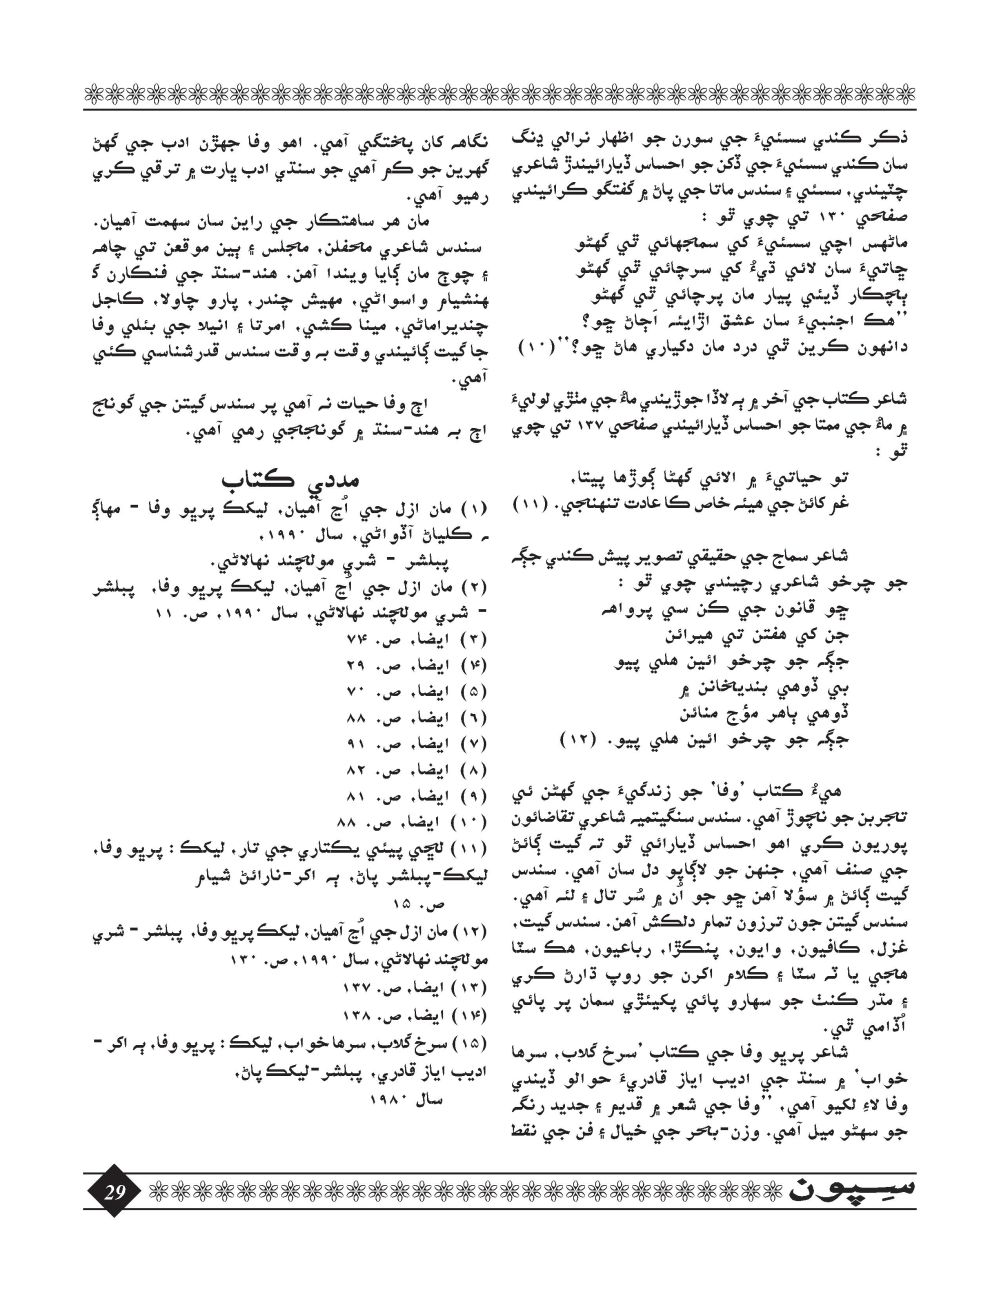 ذڪر ڪندي سسئيءَ جي سورن جو اظهار نرالي ڍنگ
سان ڪندي سسئيءَ جي ڏکن جو احساس ڏيارائيندڙ شاعري
چٽيندي، سسئي ۽ سندس ماتا جي پاڻ ۾ گفتگو ڪرائيندي
صفحي ۱۳۰ تي چوي ٿو :
ماڻهس اچي سسئيءَ کي سمجهائي ٿي گهڻو
ڇاتيءَ سان لائي ڌيءُ کي سرچائي ٿي گهڻو
ٻچڪار ڏيئي پيار مان پرچائي ٿي گهڻو
"هڪ اجنبيءَ سان عشق اڙايئہ اَڄاڻ ڇو؟
دانهون ڪرين ٿي درد مان دکياري هاڻ ڇو؟" (۱۰)
شاعر ڪتاب جي آخر ۾ ٻہ لاڏا جوڙيندي ماءُ جي مٺڙي لوليءَ
۾ ماءُ جي ممتا جو احساس ڏيارائيندي صفحي ۱۳۷ تي چوي
ٿو :
تو حياتيءَ ۾ الائي گهڻا ڳوڙها پيتا،
غم کائڻ جي هيئہ خاص ڪا عادت تنهنجي. (۱۱)
شاعر سماج جي حقيقي تصوير پيش ڪندي جڳہ
جو چرخو شاعري رچيندي چوي ٿو :
ڇو قانون جي ڪن سي پرواهہ
جن کي هفتن تي هيرائن
جڳہ جو چرخو ائين هلي پيو
بي ڏوهي بنديخانن ۾
ڏوهي ٻاهر مؤج منائن
جڳہ جو چرخو ائين هلي پيو. (۱۲)
هيءُ ڪتاب 'وفا' جو زندگيءَ جي گهڻن ئي
تجربن جو نچوڙ آهي. سندس سنگيتميہ شاعري تقاضائون
پوريون ڪري اهو احساس ڏيارائي ٿو تہ گيت ڳائڻ
جي صنف آهي، جنهن جو لاڳاپو دل سان آهي. سندس
گيت ڳائڻ ۾ سؤلا آهن ڇو جو اُن ۾ سُر تال ۽ لئہ آهي.
سندس گيتن جون ترزون تمام دلڪش آهن. سندس گيت،
غزل، ڪافيون، وايون، پنڪڙا، رباعيون، هڪ سٽا
هجي يا ٽہ سٽا ۽ ڪلام اکرن جو روپ ڌارڻ ڪري
۽ مڌر ڪنٺ جو سهارو پائي پکيئڙي سمان پر پائي
اُڏامي ٿي.
شاعر پرڀو وفا جي ڪتاب 'سرخ گلاب، سرها
خواب' ۾ سنڌ جي اديب اياز قادريءَ حوالو ڏيندي
وفا لاءِ لکيو آهي، "وفا جي شعر ۾ قديم ۽ جديد رنگہ
جو سهڻو ميل آهي. وزن-بحر جي خيال ۽ فن جي نقط
نگاهہ کان پختگي آهي. اهو وفا جهڙن ادب جي گهڻ
گهرين جو ڪم آهي جو سنڌي ادب ڀارت ۾ ترقي ڪري
رهيو آهي.
مان هر ساهتڪار جي راين سان سهمت آهيان.
سندس شاعري محفلن، مجلس ۽ ٻين موقعن تي چاهہ
۽ چوڄ مان ڳايا ويندا آهن. هند-سنڌ جي فنڪارن ک
هنشيام واسواڻي، مهيش چندر، پارو چاولا، ڪاجل
چنديراماڻي، مينا ڪشي، امرتا ۽ انيلا جي بئلي وفا
جا گيت ڳائيندي وقت بہ وقت سندس قدرشناسي ڪئي
آهي.
اڄ وفا حيات نہ آهي پر سندس گيتن جي گونج
اڄ بہ هند-سنڌ ۾ گونججي رهي آهي.
مددي ڪتاب
(۱) مان ازل جي اُڃ آهيان، ليکڪ پرڀو وفا - مهاڳ
ہ ڪلياڻ آڏواڻي، سال ۱۹۹۰،
پبلشر - شري مولچند نهالاڻي.
(۲) مان ازل جي اُڃ آهيان، ليکڪ پرڀو وفا، پبلشر
- شري مولچند نهالاڻي، سال ۱۹۹۰، ص. ۱۱
(۳) ايضا، ص. ۷۴
(۴) ايضا، ص. ۲۹
(۵) ايضا، ص. ۷۰
(٦) ايضا، ص. ۸۸
(۷) ايضا، ص. ۹۱
(۸) ايضا، ص. ۸۲
(۹) ايضا، ص. ۸۱
(۱۰) ايضا، ص. ۸۸
(۱۱) لڇي پيئي يڪتاري جي تار، ليکڪ : پرڀو وفا،
ليکڪ-پبلشر پاڻ، ٻہ اکر-نارائڻ شيام
ص. ۱۵
(۱۲) مان ازل جي اُڃ آهيان، ليکڪ پرڀو وفا، پبلشر - شري
مولچند نهالاڻي، سال ۱۹۹۰، ص. ۱۳۰
(۱۳) ايضا، ص. ۱۳۷
(۱۴) ايضا، ص. ۱۳۸
(۱۵) سرخ گلاب، سرها خواب، ليکڪ : پرڀو وفا، ٻہ اکر -
اديب اياز قادري، پبلشر-ليکڪ پاڻ،
سال ۱۹۸۰
سِپون
29